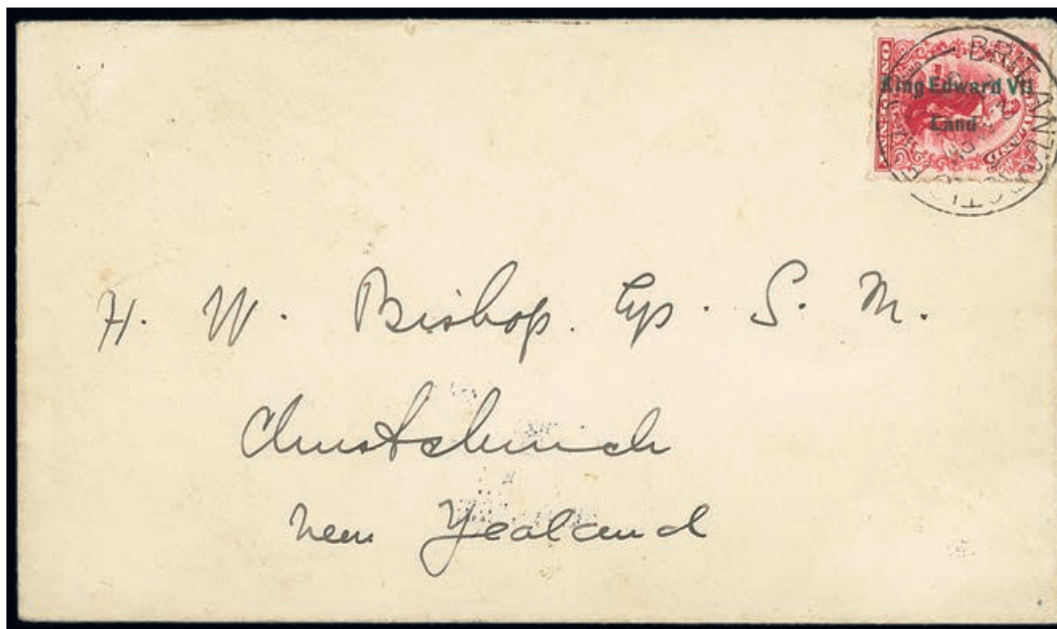 King Edward VII
Land
BRIT. ANTARCTIC
H. W. Bishop. Esq. S. M.
Christchurch
New Zealand